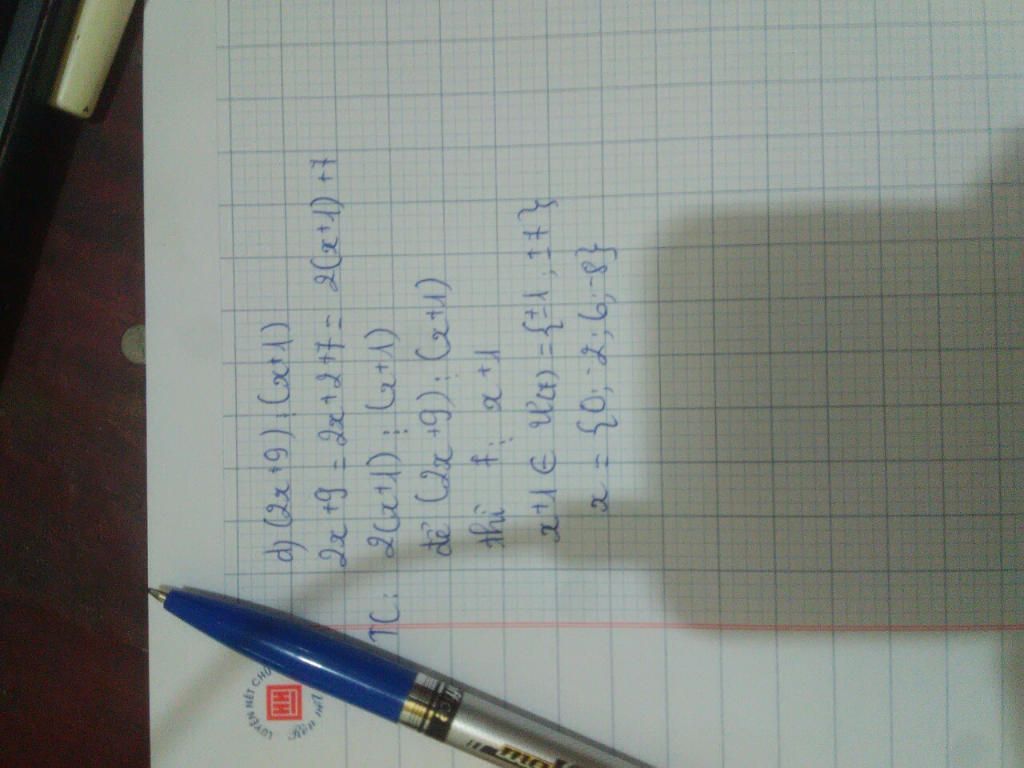 d) (2x+9) ⋮ (x+1)
2x+9 = 2x+2+7 = 2(x+1)+7
TC: 2(x+1) ⋮ (x+1)
để (2x+9) ⋮ (x+1)
thì 7 ⋮ x+1
x+1 ∈ Ư(7) = {±1, ±7}
x = {0; -2; 6; -8}
LUYỆN NÉT CHỮ
HH